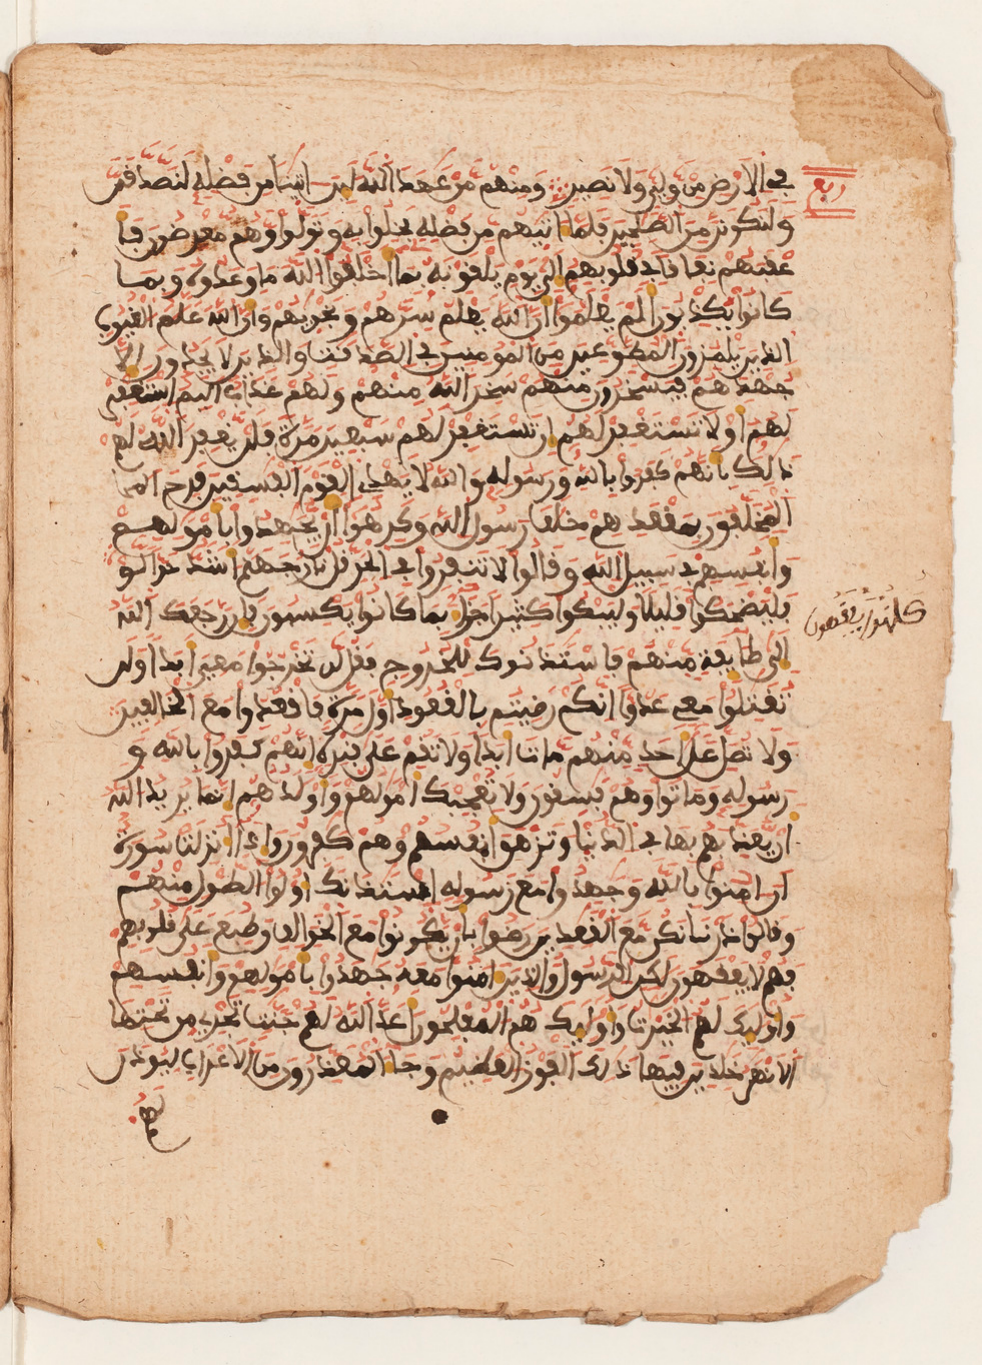 ربع
في الارض من ولي ولا نصير ومنهم من عهد الله لين اتينا من فضله لنصدقن
ولنكونن من الصلحين فلما اتيهم من فضله بخلوا به وتولوا وهم معرضون فا
عقبهم نفاقا في قلوبهم الى يوم يلقونه بما اخلفوا الله ما وعدوه وبما
كانوا يكذبون الم يعلموا ان الله يعلم سرهم ونجويهم وان الله علم الغيوب
الذين يلمزون المطوعين من المومنين في الصدقت والذين لا يجدون الا
جهدهم فيسخرون منهم سخر الله منهم ولهم عذاب اليم استغفر
لهم او لا تستغفر لهم ان تستغفر لهم سبعين مرة فلن يغفر الله لهم
ذلك بانهم كفروا بالله ورسوله والله لا يهدي القوم الفسقين فرح
المخلفون بمقعدهم خلف رسول الله وكرهوا ان يجهدوا بامولهم
وانفسهم في سبيل الله وقالوا لا تنفروا في الحر قل نار جهنم اشد حرا لو
كانوا يفقهون
فليضحكوا قليلا وليبكوا كثيرا جزا بما كانوا يكسبون فان رجعك الله
الى طايفة منهم فاستذنوك للخروج فقل لن تخرجوا معي ابدا ولن
تقتلوا معي عدوا انكم رضيتم بالقعود اول مرة فاقعدوا مع الخالفين
ولا تصل على احد منهم مات ابدا ولا تقم على قبره انهم كفروا بالله و
رسوله وماتوا وهم فسقون ولا تعجبك امولهم واولدهم انما يريد الله
ان يعذبهم بها في الدنيا وتزهق انفسهم وهم كفرون واذا انزلت سورة
ان امنوا بالله وجهدوا مع رسوله استذنك اولوا الطول منهم
وقالوا ذرنا نكن مع القعدين رضوا بان يكونوا مع الخوالف وطبع على قلوبهم
فهم لا يفقهون لكن الرسول والذين امنوا معه جهدوا بامولهم وانفسهم
واوليك لهم الخيرت واوليك هم المفلحون اعد الله لهم جنت تجري من تحتها
الانهر خلدين فيها ذلك الفوز العظيم وجا المعذرون من الاعراب ليوذن
لهم